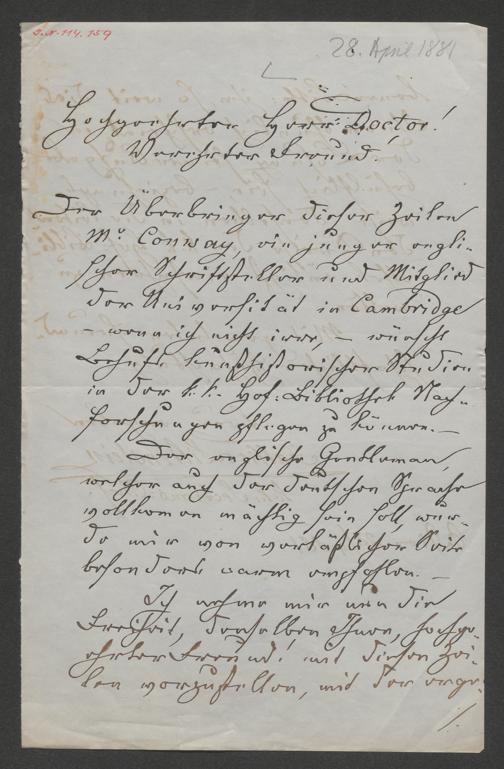 J.N. 114.159
28. April 1881
Hochgeehrter Herr Doctor!
Verehrter Freund!
Der Überbringer dieser Zeilen
Mr Conway, ein junger engli-
scher Schriftsteller und Mitglied
der Universität in Cambridge
– wenn ich nicht irre, – wünscht
Behufs kunsthistorischer Studien
in der k.k. Hof-Bibliothek Nach-
forschungen pflegen zu können. –
Der englische Gentleman,
welcher auch der deutschen Sprache
vollkomen mächtig sein soll, wur-
de mir von verläßlicher Seite
besonders warm empfohlen. –
Ich nehme mir nun die
Freiheit, denselben Ihnen, hochge-
ehrter Freund! mit diesen Zei-
len vorzustellen, mit der erge-
./.